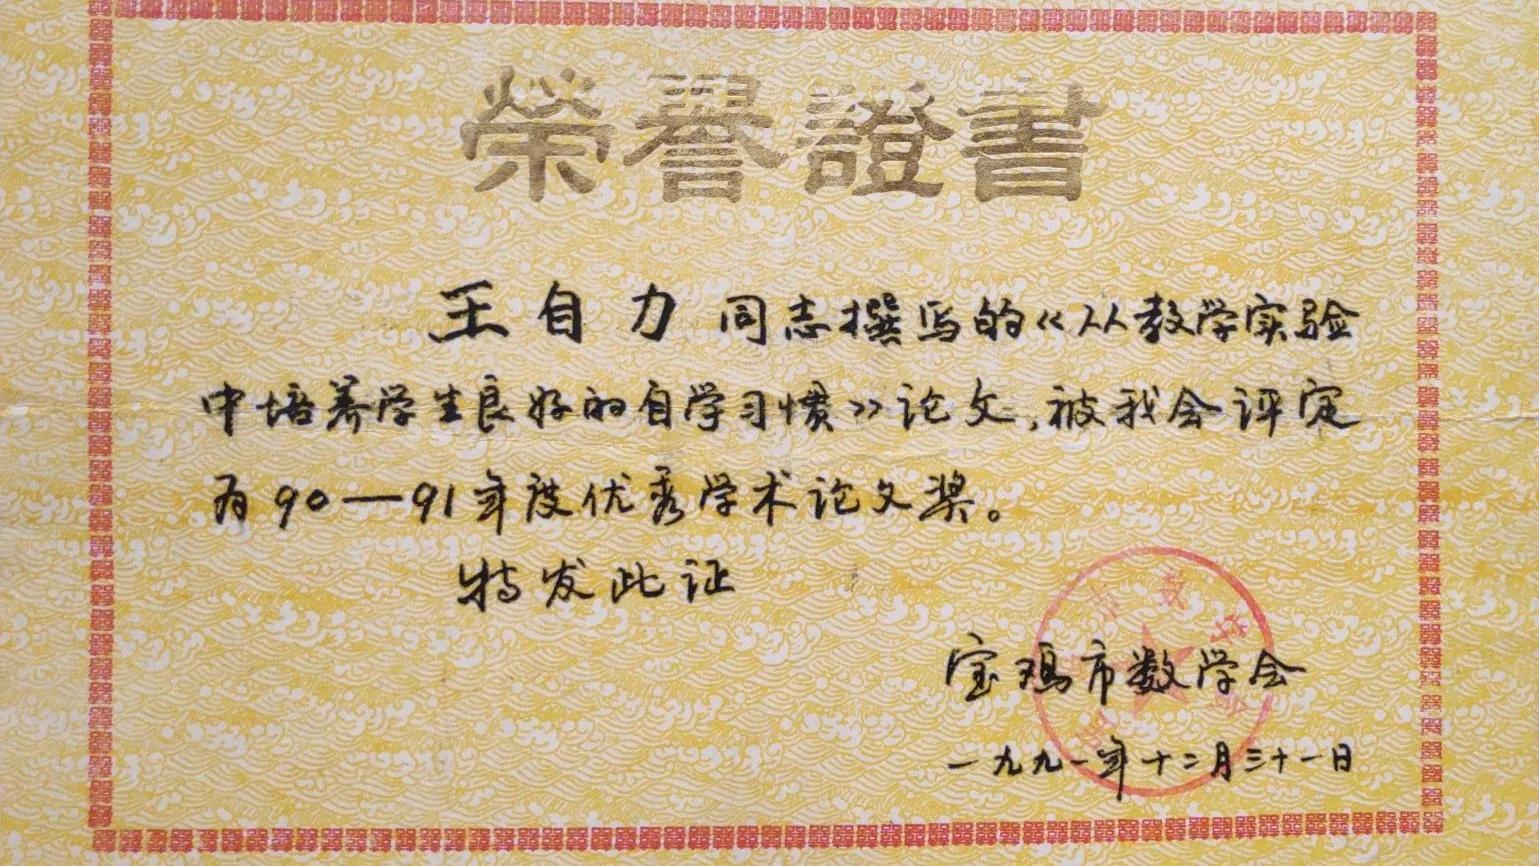 榮譽證書
王自力同志撰写的《从教学实验
中培养学生良好的自学习惯》论文,被我会评定
为90—91年度优秀学术论文奖。
特发此证
宝鸡市数学会
一九九一年十二月三十一日